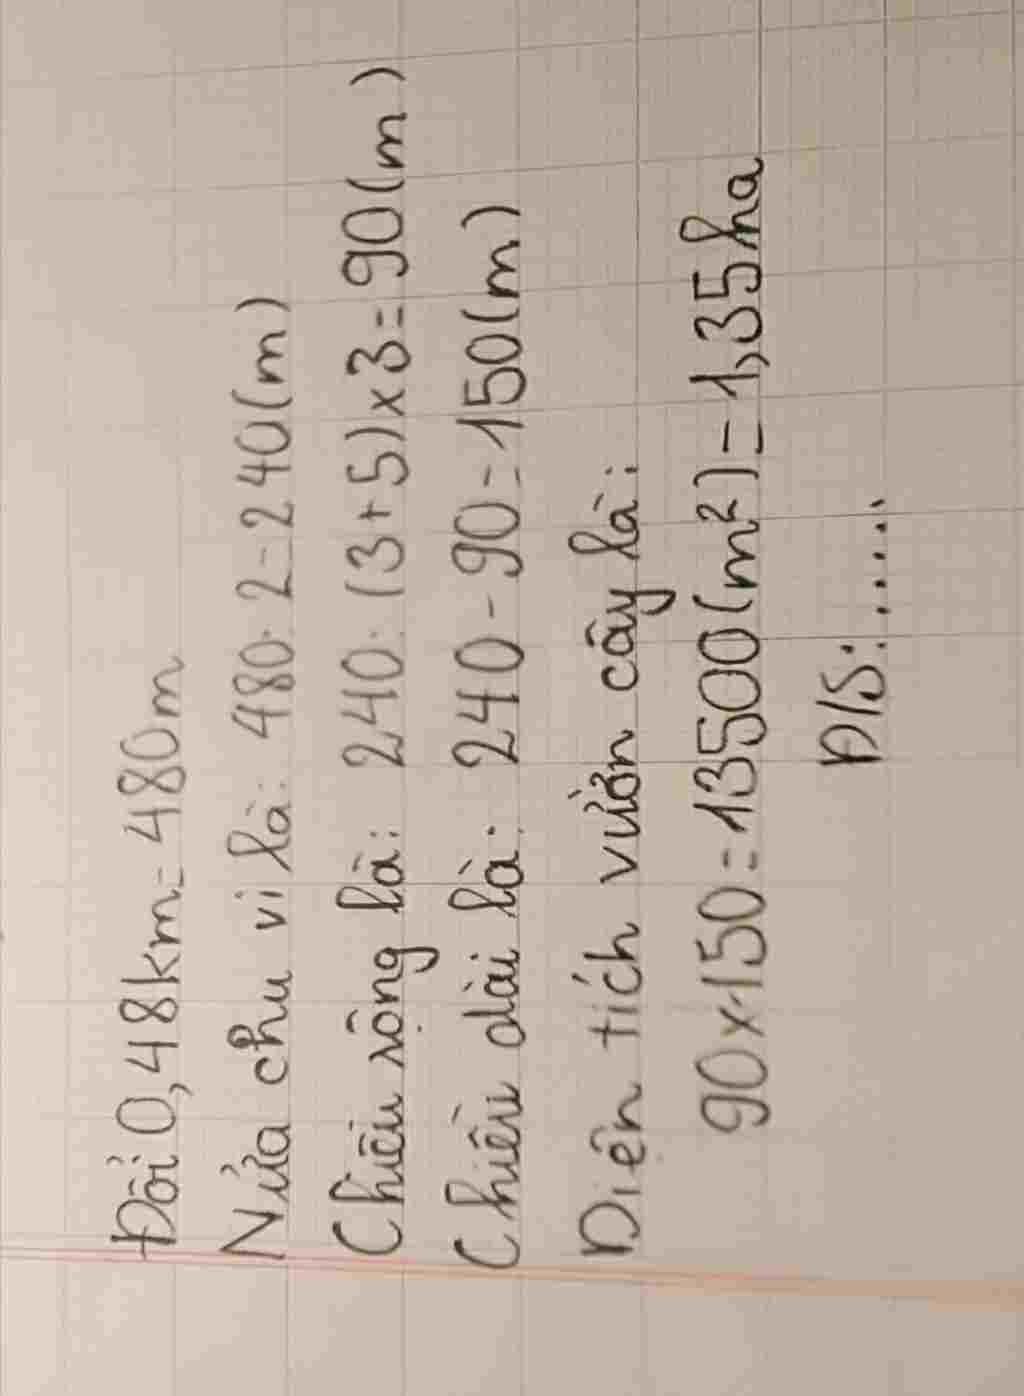 Đổi 0,48km = 480m
Nửa chu vi là: 480 : 2 = 240(m)
Chiều rộng là: 240 : (3+5) x 3 = 90(m)
Chiều dài là: 240 - 90 = 150(m)
Diện tích vườn cây là:
90 x 150 = 13500(m²) = 1,35ha
Đ/S:.....